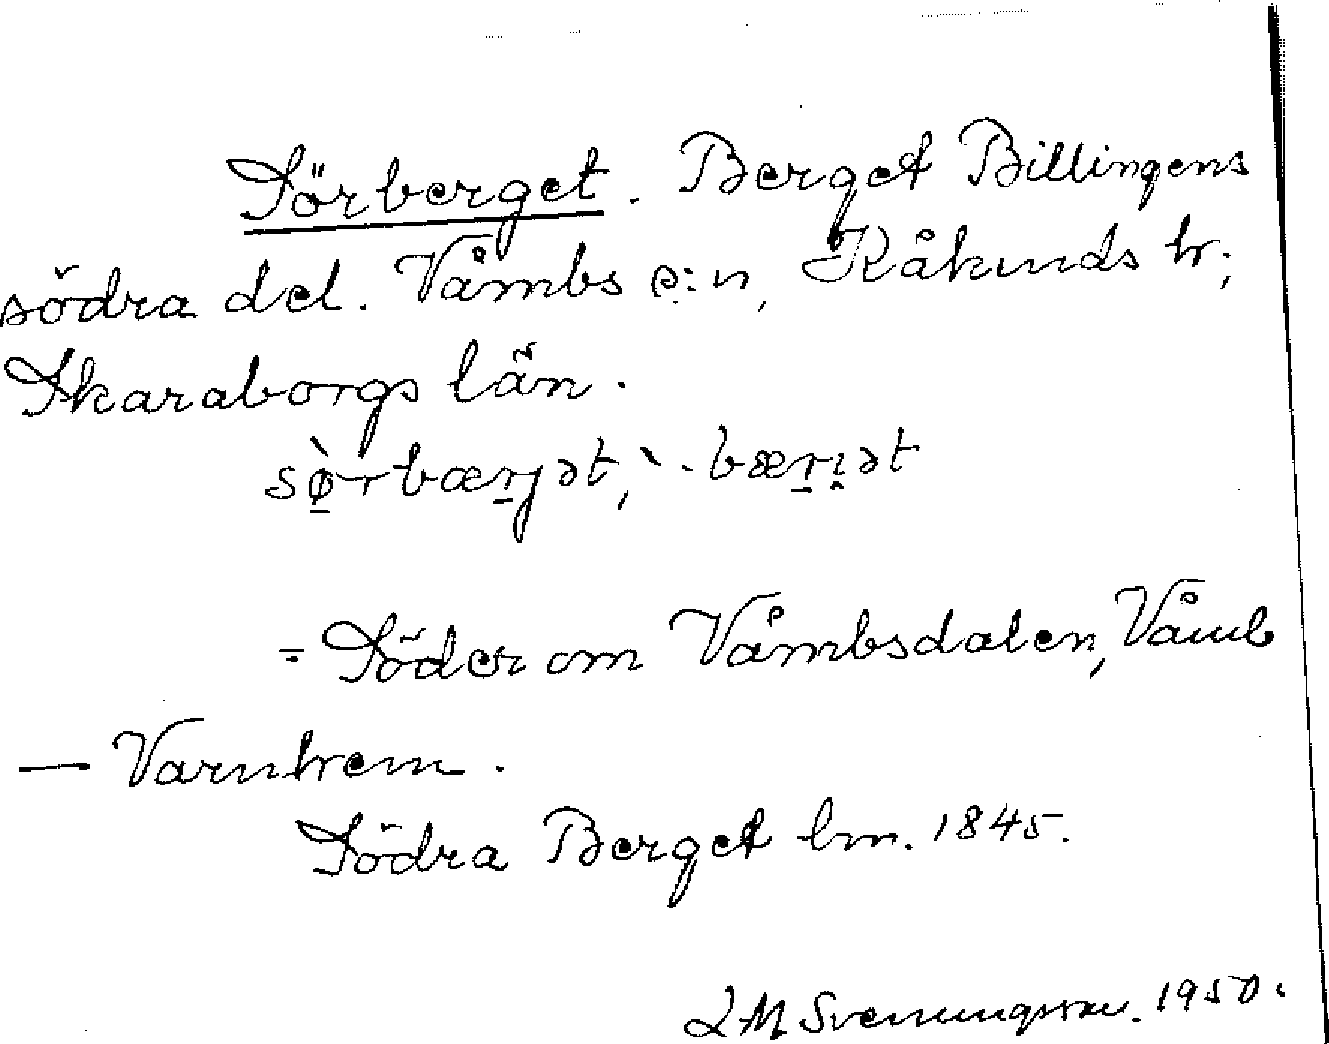 Sörberget. Berget Billingens
södra del. Våmbs s:n, Kåkinds hr;
Skaraborgs län.
sø̠̀rbær̠jət, `-bær̠i̯ət
- Söder om Våmbsdalen, Våmb
— Varnhem.
Södra Berget lm. 1845.
LM Svenungsson. 1950.